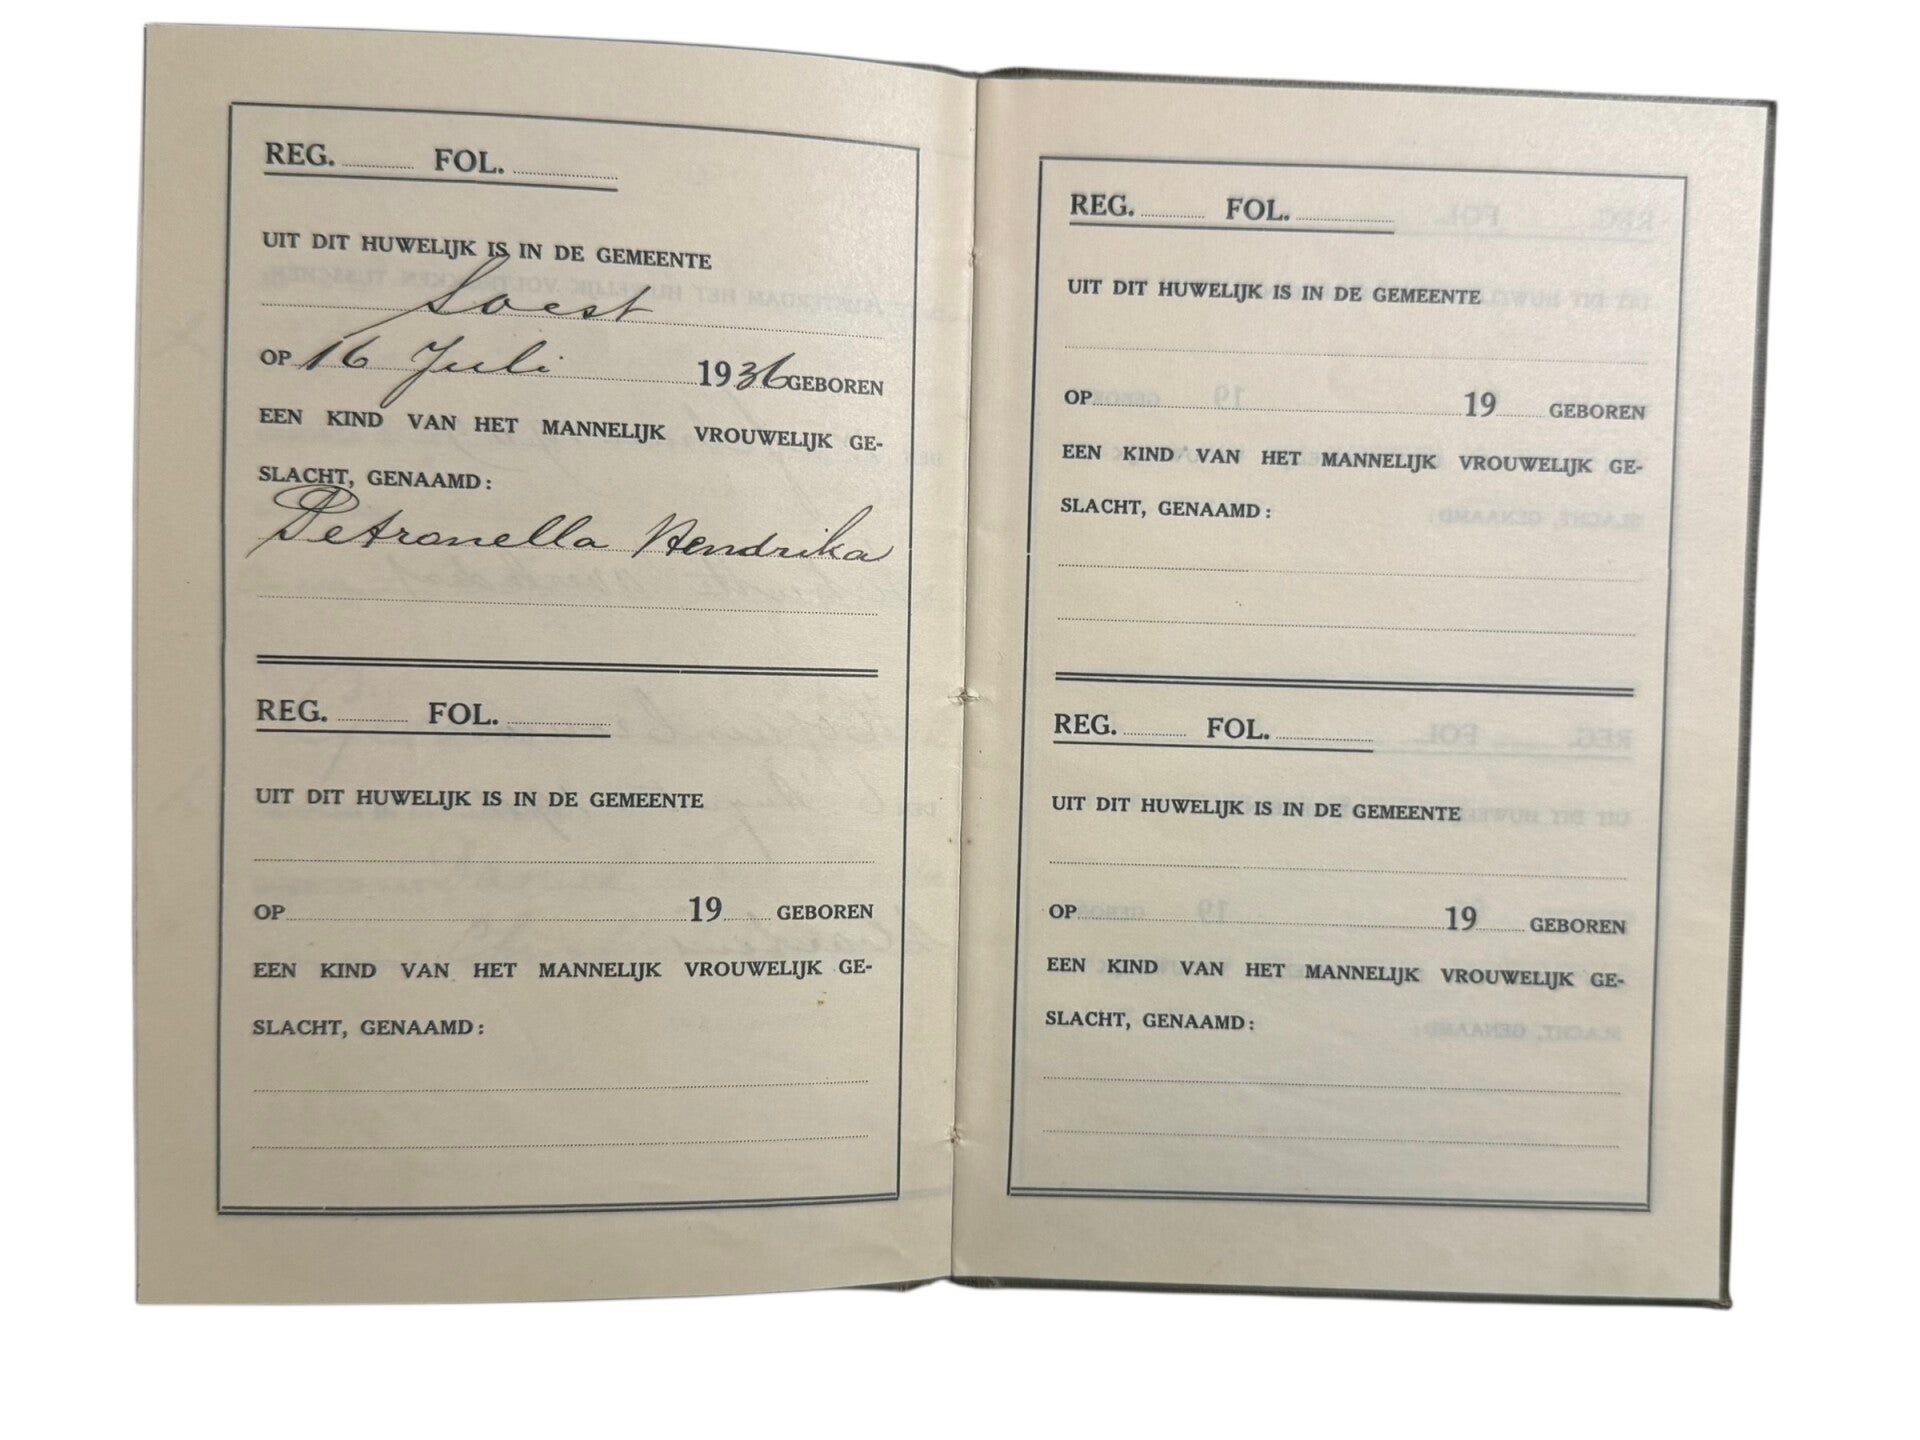 REG. FOL.
UIT DIT HUWELIJK IS IN DE GEMEENTE
Soest
OP 16 Juli 1936 GEBOREN
EEN KIND VAN HET MANNELIJK VROUWELIJK GE-
SLACHT, GENAAMD:
Petronella Hendrika
REG. FOL.
UIT DIT HUWELIJK IS IN DE GEMEENTE
OP 19 GEBOREN
EEN KIND VAN HET MANNELIJK VROUWELIJK GE-
SLACHT, GENAAMD:
REG. FOL.
UIT DIT HUWELIJK IS IN DE GEMEENTE
OP 19 GEBOREN
EEN KIND VAN HET MANNELIJK VROUWELIJK GE-
SLACHT, GENAAMD:
REG. FOL.
UIT DIT HUWELIJK IS IN DE GEMEENTE
OP 19 GEBOREN
EEN KIND VAN HET MANNELIJK VROUWELIJK GE-
SLACHT, GENAAMD: